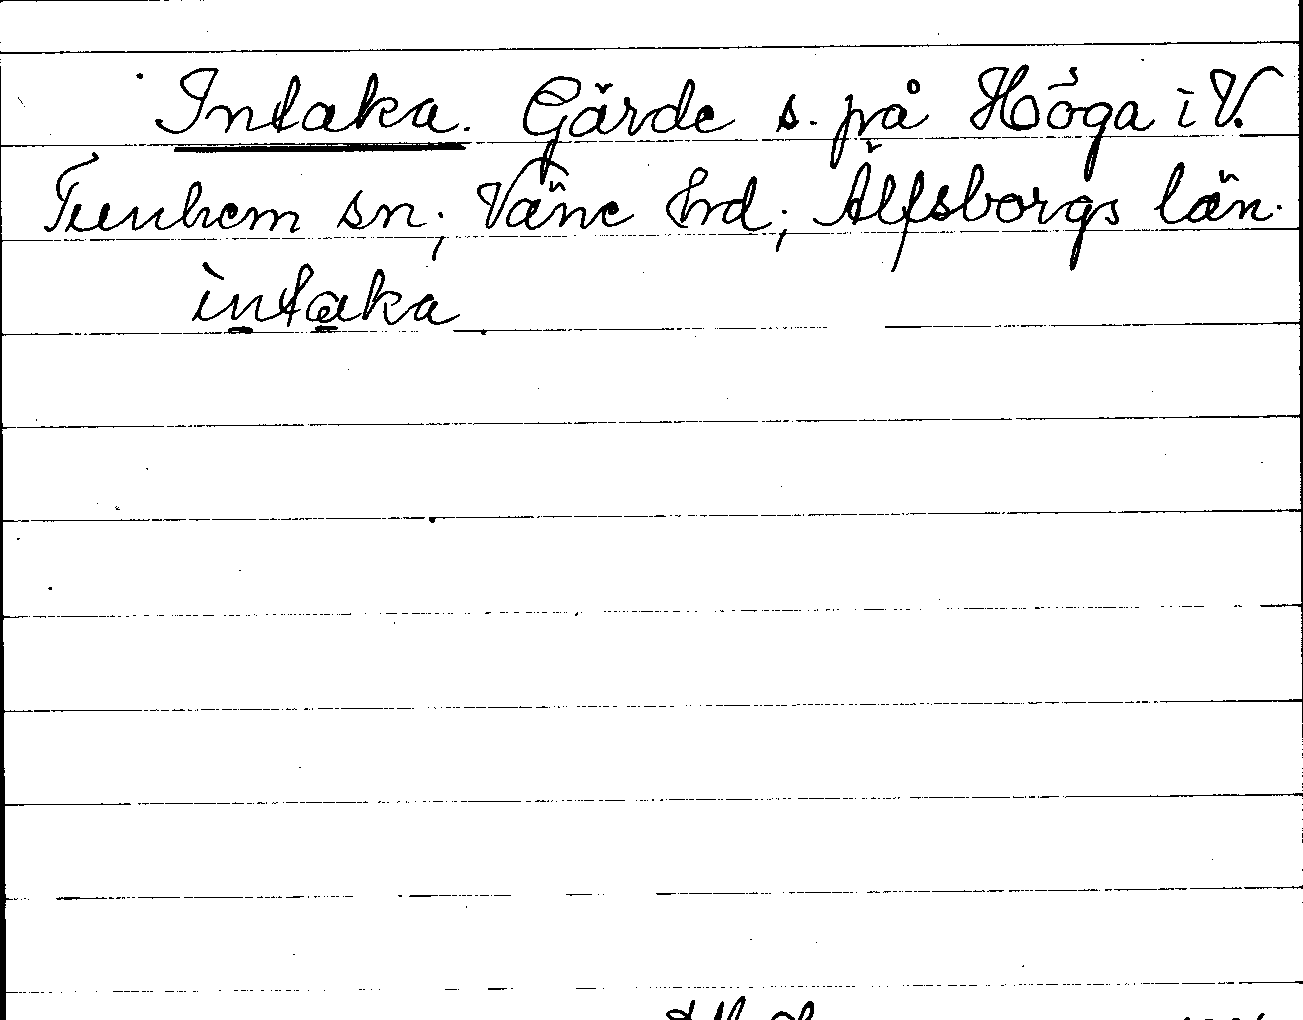 Intaka. Gärde s. på Höga i V.
Tunhem sn; Väne hrd; Älfsborgs län.
intaka